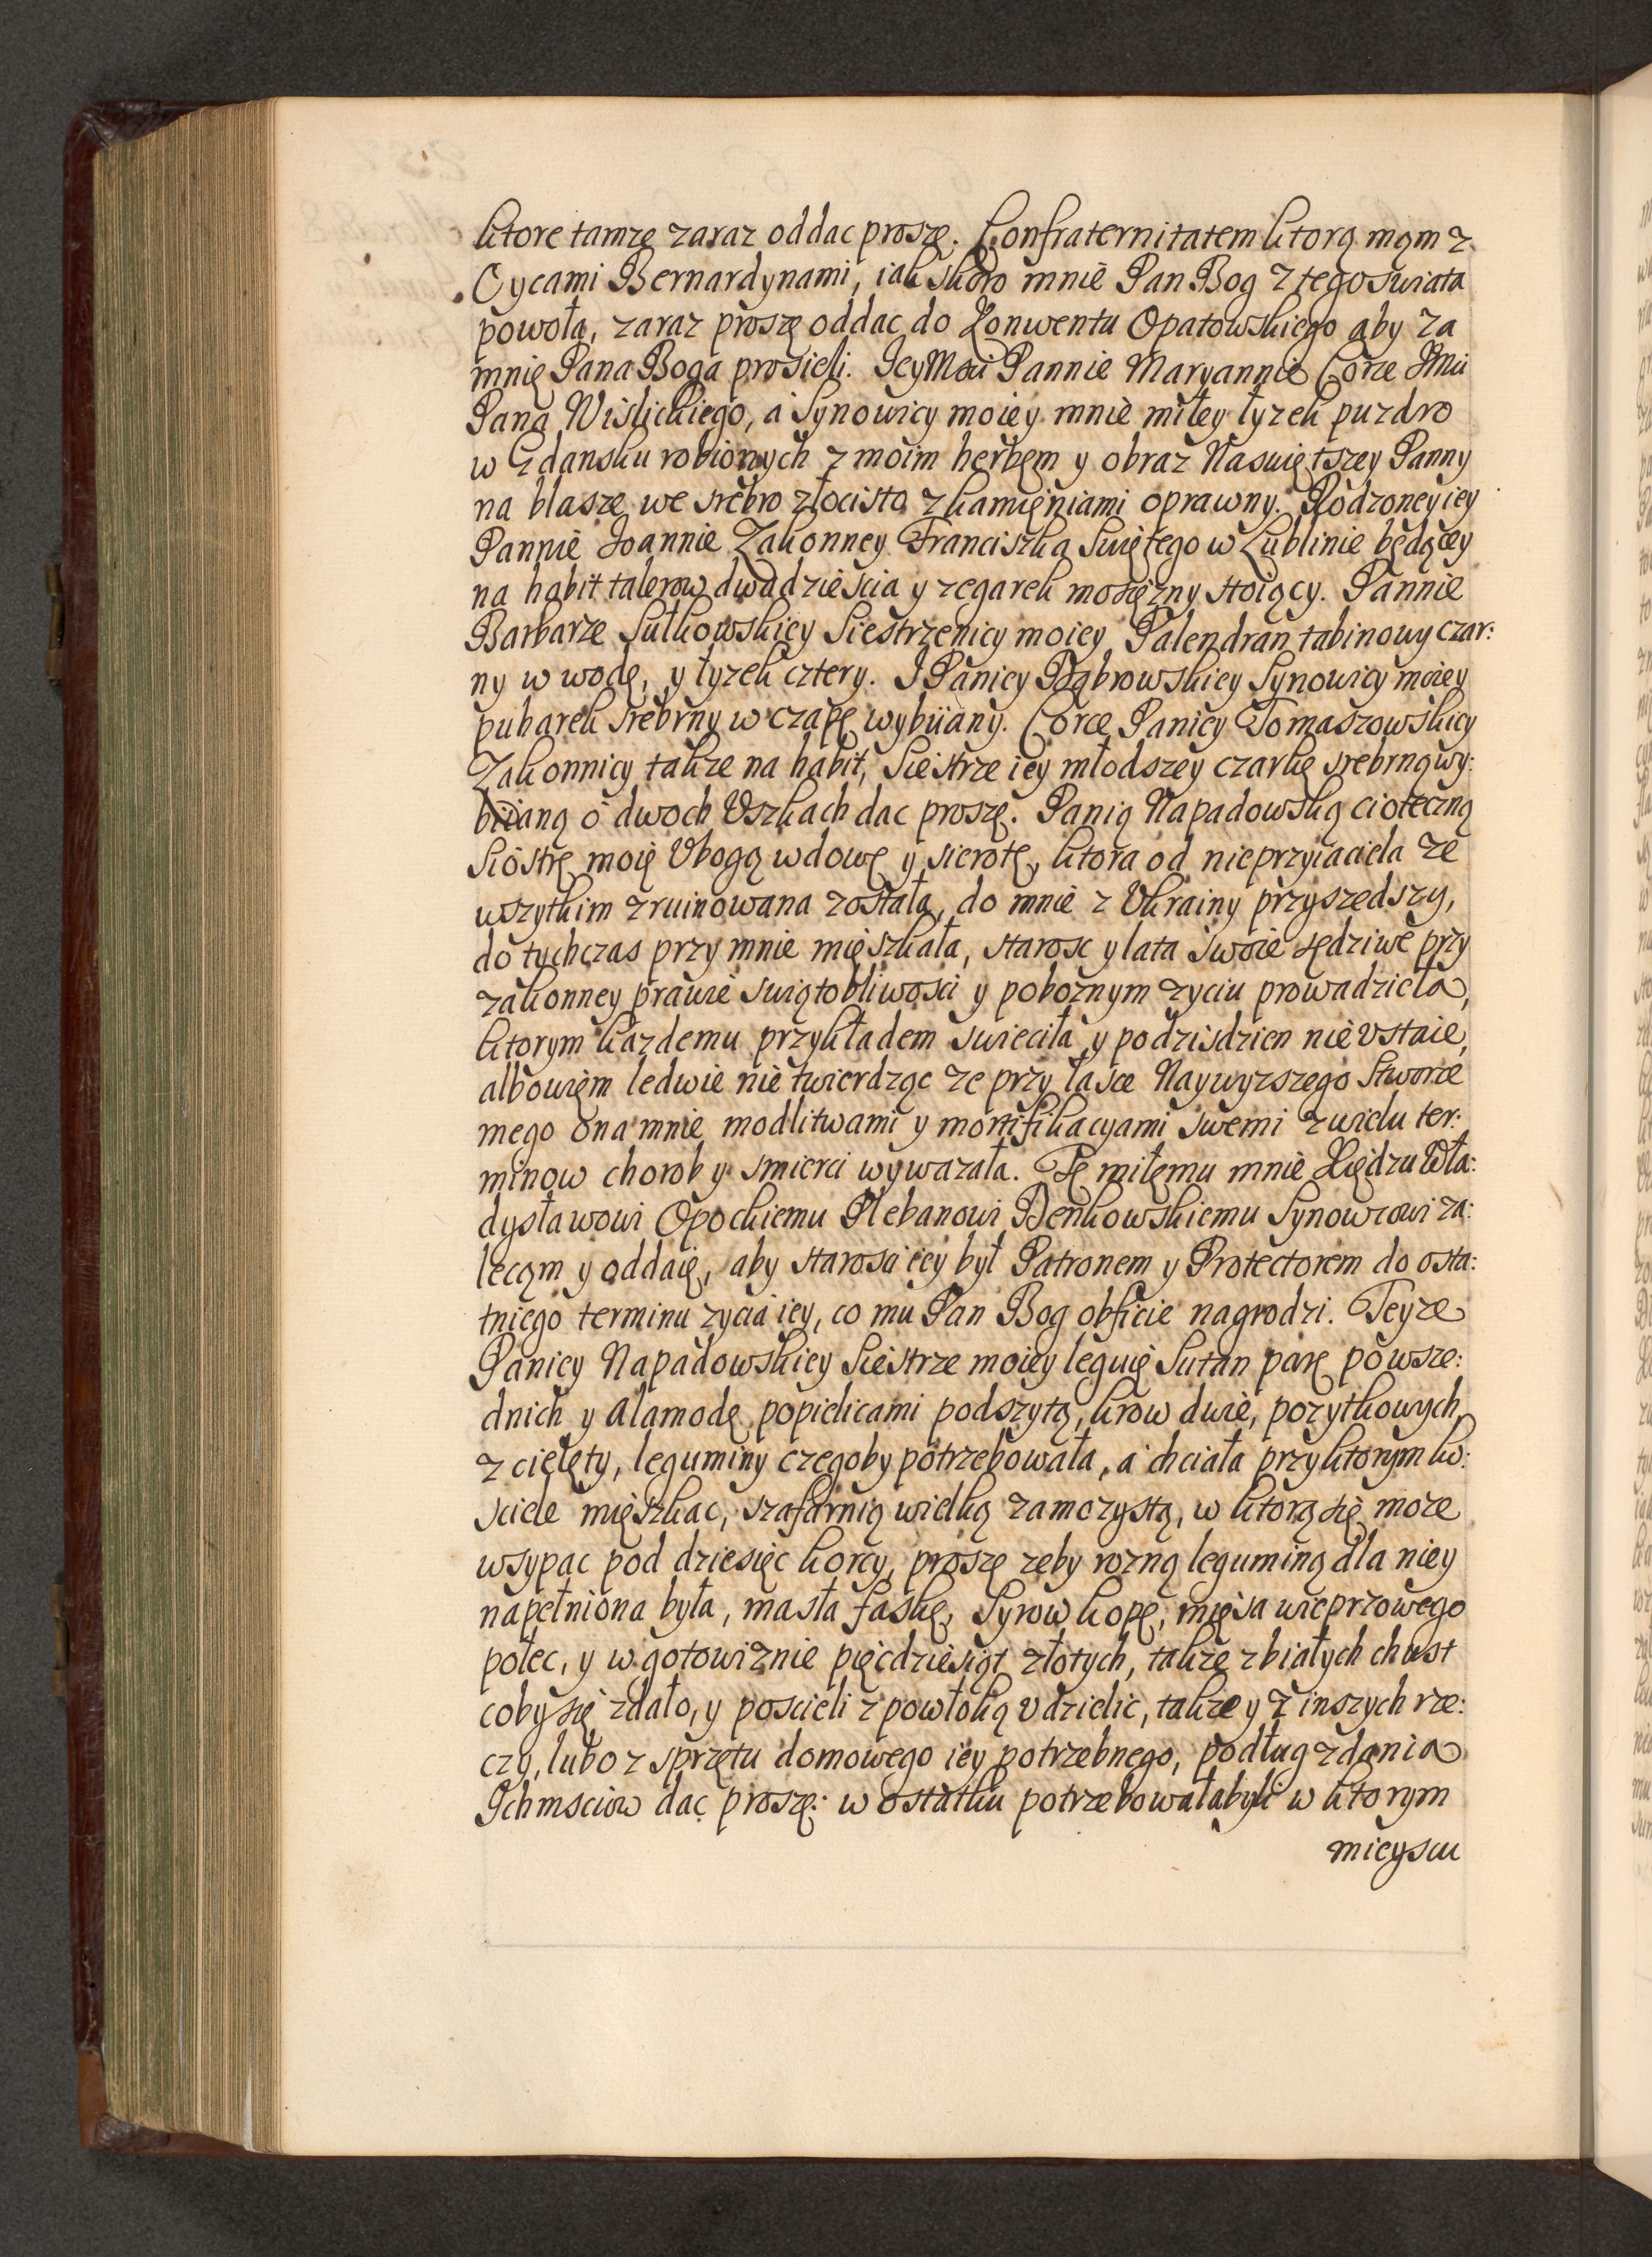 ktore tamze zaraz oddac proszę. Confraternitatem ktorą mąm z
Oycami Bernardynami, iak skoro mnie Pan Bog z tego swiata
powoła, zaraz proszę oddac do Konwentu Opatowskiego aby za
mnię Pana Boga prosieli. IeyMci Pannie Maryannie Corce JMci
Pana Wislickiego, a Synowicy moiey mnie miłey łyzek puzdro
w Gdansku robionych z moim herbem y obraz Naswiętszey Panny
na blasze we srebro złocisto z kamięniami oprawny. Rodzoney iey
Pannie Joannie Zakonney Franciszka Swiętego w Lublinie będącey
na habit talerow dwadziescia y zegarek mosięzny stoiący. Pannie
Barbarze Sulkowskiey Siestrzenicy moiey Palendran tabinowy czar:
ny w wodę, y łyzek cztery. J Paniey Dąbrowskiey Synowicy moiey
puharek srebrny w czapę wybiiany. Corce Paniey Tomaszowskiey
Zakonnicy takze na habit, Siestrze iey młodszey czarkę srebrną wy:
biianą o dwoch Vszkach dac proszę. Panią Napadowską cioteczną
Siostrę moię Vbogą wdowę y sierotę, ktora od nieprzyiaciela ze
wszytkim zruinowana została, do mnie z Vkrainy przyszedszy,
do tychczas przy mnie mięszkała, starosc y lata swoie sędziwe przy
zakonney prawie swiątobliwosci y poboznym zyciu prowadzieła,
ktorym kazdemu przykładem swieciła y podzisdzien nie vstaie,
albowięm ledwie nie twierdząc ze przy łasce Naywyzszego Stworce
mego ona mnie modlitwami y mortifikacyami swemi z wielu ter:
minow chorob y smierci wywazała. Tę miłemu mnie Xiędzu Wła:
dysławowi Opockiemu Plebanowi Denkowskiemu Synowcowi za:
lecąm y oddaię, aby starosci iey był Patronem y Protectorem do osta:
tniego terminu zycia iey, co mu Pan Bog obficie nagrodzi. Teyze
Paniey Napadowskiey Siestrze moiey leguię Sutan parę powsze:
dnich y Alamodę popielicami podszytą, krow dwie, pozytkowych
z cielęty, leguminy czegoby potrzebowała, a chciała przy ktorym ko:
sciele mięszkac, szafarnią wielką zamczystą, w ktorą się moze
wsypac pod dziesięc korcy, proszę zeby rozną leguminą dla niey
napełniona była, masła faskę, Syrow kopę, mięsa wieprzowego
połec, y w gotowiznie pięcdziesiąt złotych, takze z białych chust
coby się zdało, y poscieli z powłoką vdzielic, takze y z inszych rze:
czy, lubo z sprzętu domowego iey potrzebnego, podług zdania
Ichmsciow dac proszę: w ostatku potrzebowałabyli w ktorym
mieyscu